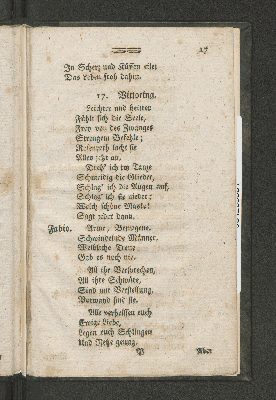 17
In Scherz und Küssen eilet
Das Leben froh dahin.
17. Vittorina.
Leichter und heitrer
Fühlt sich die Seele,
Frey von des Zwanges
Strengem Befehle;
Rosenroth lacht sie
Alles jetzt an.
Dreh' ich im Tanze
Schmeidig die Glieder,
Schlag' ich die Augen auf,
Schlag' ich sie nieder;
Welch schöne Maske!
Sagt jeder dann.
Fabio. Arme, Betrogene,
Schwindelnde Männer,
Weibliche Treue
Gab es noch nie.
All ihr Versprechen,
All ihre Schwüre,
Sind nur Verstellung,
Vorwand sind sie.
Alle verheissen euch
Ewige Liebe,
Legen euch Schlingen
Und Netze genug.
Aber